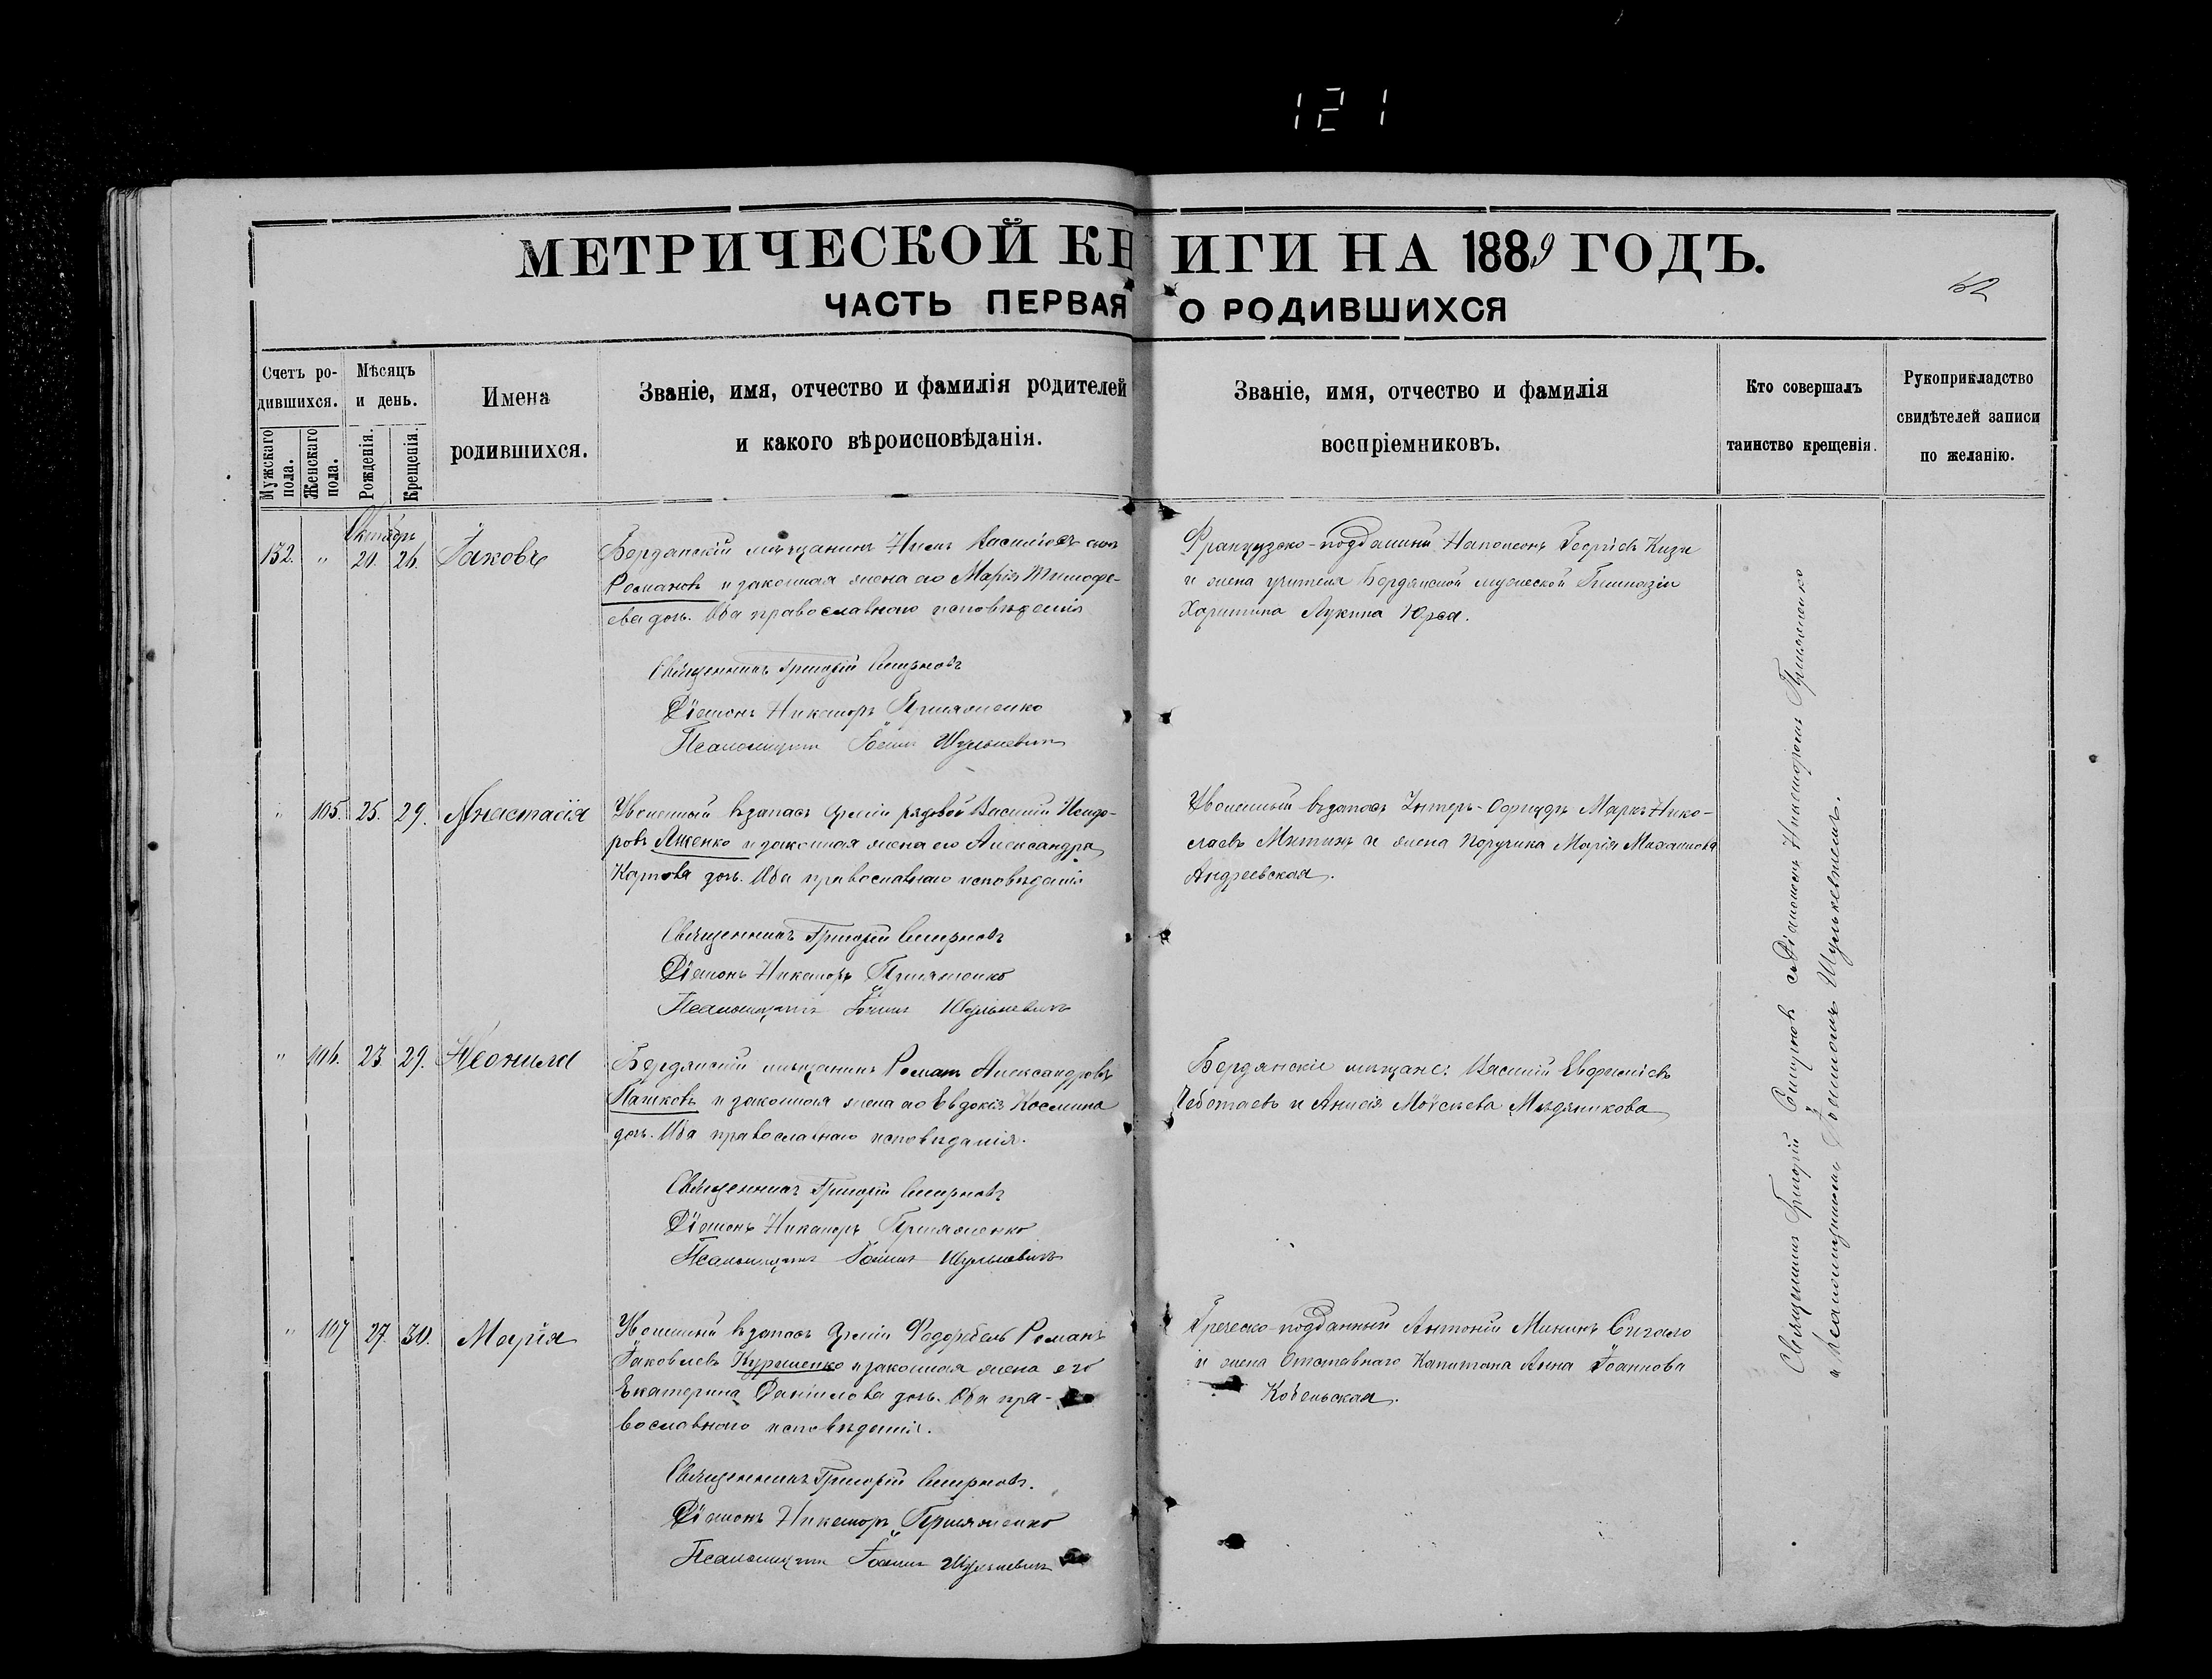 121
МЕТРИЧЕСКОЙ КНИГИ НА 1889 ГОДЪ.
52
ЧАСТЬ ПЕРВАЯ О РОДИВШИХСЯ
Счетъ ро-
дившихся.
Мужскаго пола.
Женскаго пола.
Мѣсяцъ
и день.
Рожденія.
Крещенія.
Имена
родившихся.
Званіе, имя, отчество и фамилія родителей
и какого вѣроисповѣданія.
Званіе, имя, отчество и фамилія
воспріемниковъ.
Кто совершалъ
таинство крещенія.
Рукоприкладство
свидѣтелей записи
по желанію.
Октябрь
132. " 20. 26. Іаковъ
Бердянскій мѣщанинъ Василіевъ сынъ
Романовъ и законная жена его Марія Тимофе-
ева дочь. Оба православнаго исповѣданія
Священникъ Григорій Смирновъ
Діаконъ Никаноръ
Псаломщикъ Іоаннъ Шулькевичъ
Французско-подданный Наполеонъ Георгіевъ
и жена учителя Бердянской мужеской Гимназіи
Харитина Лукина Юрса.
" 105. 25. 29. Анастасія
Уволенный въ запасъ Арміи рядовой Василій Исидо-
ровъ Ященко и законная жена его Александра
Карпова дочь. Оба православнаго исповѣданія
Священникъ Григорій Смирновъ
Діаконъ Никаноръ
Псаломщикъ Іоаннъ Шулькевичъ
Уволенный въ запасъ Унтеръ-Офицеръ Маркъ Нико-
лаевъ Митинъ и жена Поручика Марія Михаилова
Андреевская.
" 106. 23. 29. Неонила
Бердянскій мѣщанинъ Романъ Александровъ
Пашковъ и законная жена его Евдокія Космина
дочь. Оба православнаго исповѣданія.
Священникъ Григорій Смирновъ
Діаконъ Никаноръ
Псаломщикъ Іоаннъ Шулькевичъ
Бердянскіе мѣщане: Василій Евфиміевъ
Чеботаевъ и Анисія Моѵсеева Мѣдяникова
" 107 27. 30. Марія
Уволенный въ запасъ Арміи Фельдфебель Романъ
Іаковлевъ Куриленко и законная жена его
Екатерина Даніилова дочь. Оба пра-
вославнаго исповѣданія.
Священникъ Григорій Смирновъ.
Діаконъ Никаноръ
Псаломщикъ Іоаннъ Шулькевичъ
Греческо-подданный Антоній Мининъ Сигало
и жена Отставнаго Капитана Анна Іоаннова
Кобельская.
Священникъ Григорій Смирновъ съ Діакономъ Никаноромъ
и Псаломщикомъ Іоанномъ Шулькевичемъ.